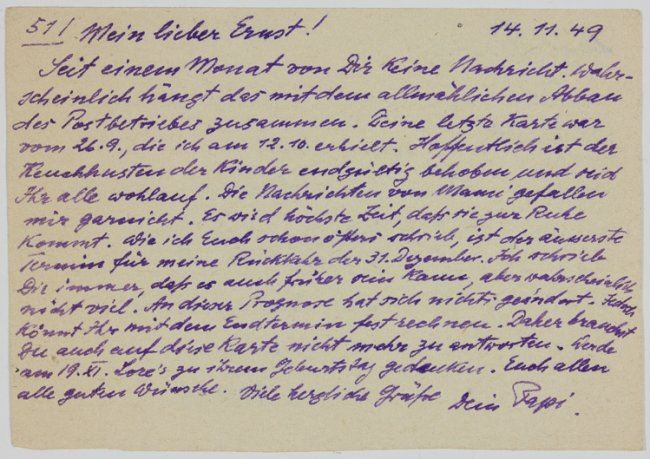 51! Mein lieber Ernst! 14.11.49
Seit einem Monat von Dir keine Nachricht. Wahr-
scheinlich hängt das mit dem allmählichen Abbau
des Postbetriebes zusammen. Deine letzte Karte war
vom 26.9., die ich am 12.10. erhielt. Hoffentlich ist der
Keuchhusten der Kinder endgültig behoben und seid
Ihr alle wohlauf. Die Nachrichten von Mami gefallen
mir garnicht. Es wird höchste Zeit, daß sie zur Ruhe
kommt. Wie ich Euch schon öfters schrieb, ist der äusserste
Termin für meine Rückkehr der 31. Dezember. Ich schrieb
Dir immer, daß es auch früher sein kann, aber wahrscheinlich
nicht viel. An dieser Prognose hat sich nichts geändert. Jedoch
könnt Ihr mit dem Endtermin fest rechnen. Daher brauchst
Du auch auf diese Karte nicht mehr zu antworten. Werde
am 19.XI. Lore's zu ihrem Geburtstag gedenken. Euch allen
alle guten Wünsche. Viele herzliche Grüße Dein Papi.